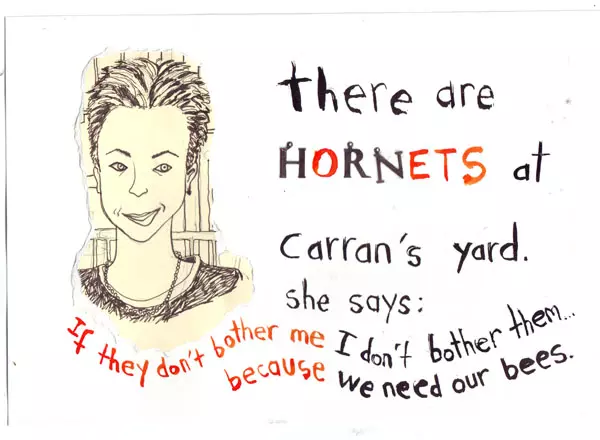 there are
HORNETS at
Carran's yard.
she says:
If they don't bother me I don't bother them...
because we need our bees.